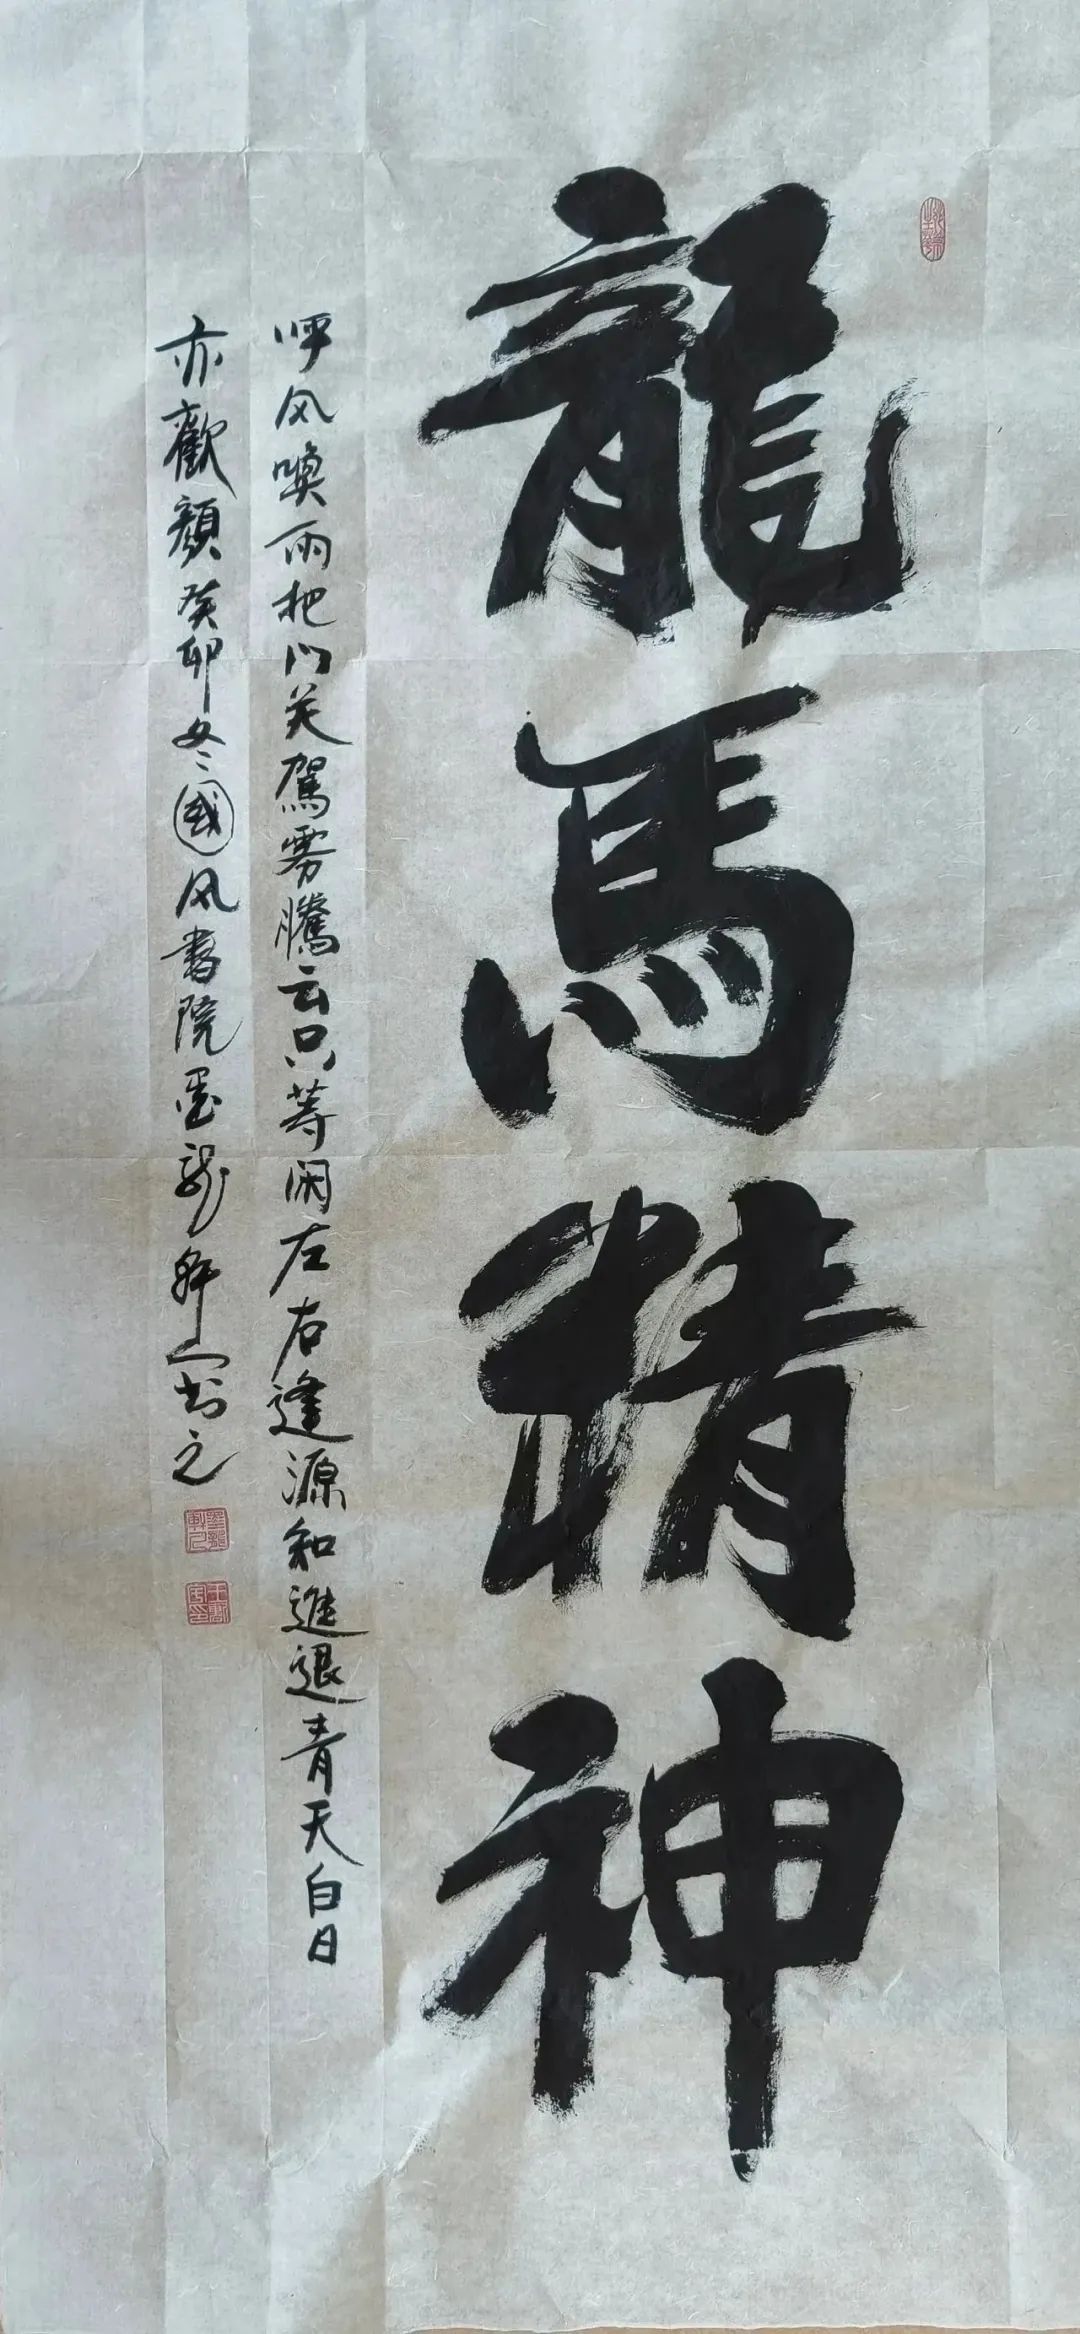 龍馬精神
呼风唤雨把门关駕雾騰云只等闲左右逢源知進退青天白日
亦歡顔癸卯冬国风書院墨龍军山书之